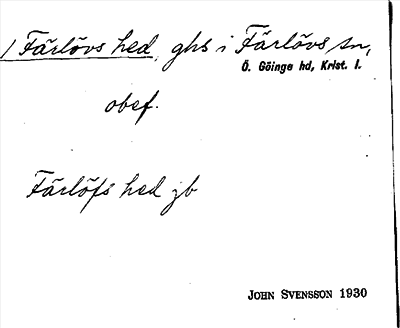 1 Färlövs hed, ghs i Färlövs sn,
Ö. Göinge hd, Krist. l.
obef.
Färlöfs hed jb
JOHN SVENSSON 1930